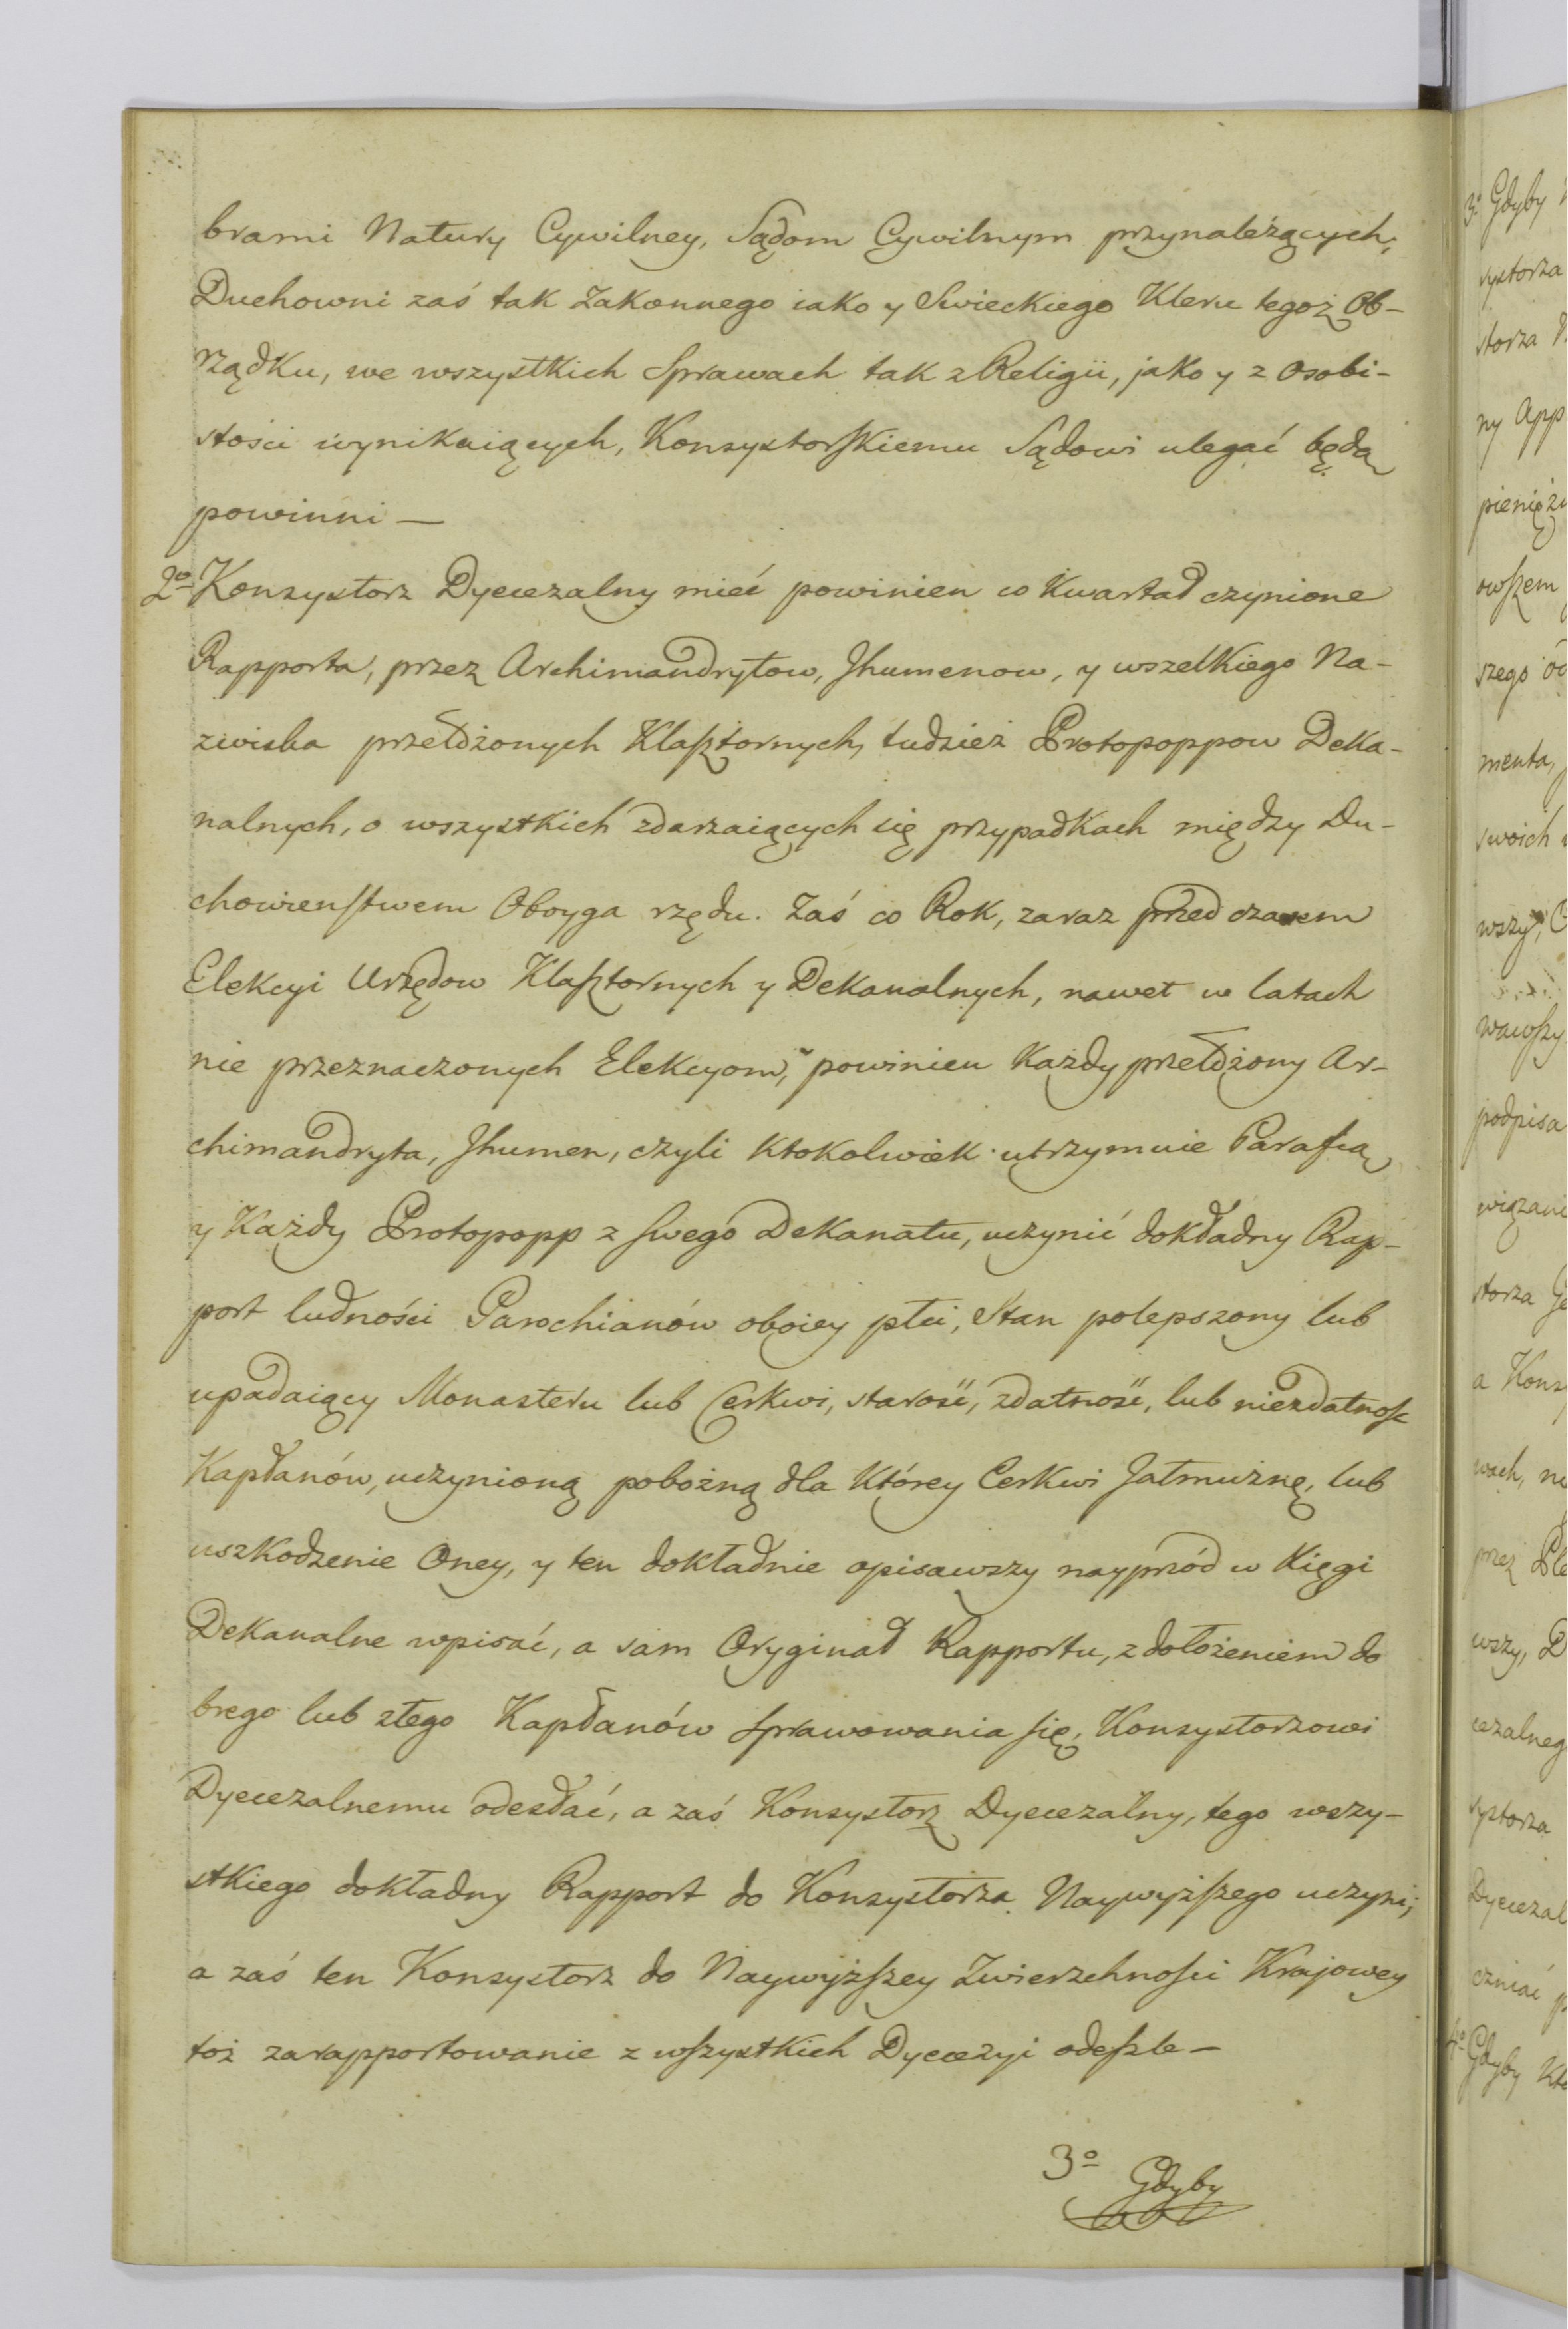 brami Natury Cywilney, Sądom Cywilnym przynależących,
Duchowni zaś tak Zakonnego iako y Swieckiego Kleru tegoż Ob-
rządku, we wszystkich Sprawach tak z Religii, jako y z Osobi-
stości wynikaiących, Konsystorskiemu Sądowi ulegać będą
powinni —
2o Konsystorz Dyecezalny mieć powinien co Kwartał czynione
Rapporta, przez Archimandrytow, Jhumenow, y wszelkiego Na-
zwiska przełożonych Klasztornych, tudzież Protopoppow Deka-
nalnych, o wszystkich zdarzaiących się przypadkach między Du-
chowienstwem Oboyga rzędu. Zaś co Rok, zaraz przed czasem
Elekcyi Urzędow Klasztornych y Dekanalnych, nawet w latach
nie przeznaczonych Elekcyom, powinien Każdy przełożony Ar-
chimandryta, Jhumen, czyli Ktokolwiek utrzymuie Parafią
y Każdy Protopopp z swego Dekanatu, uczynić dokładny Rap-
port ludności Parochianów oboiey płci, Stan polepszony lub
upadaiący Monasteru lub Cerkwi, starość, zdatność, lub niezdatnosc
Kapłanów, uczynioną pobożną dla Którey Cerkwi Jałmużnę, lub
uszkodzenie Oney, y ten dokładnie opisawszy nayprzód w Kięgi
Dekanalne wpisać, a sam Oryginał Rapportu, z dołożeniem do
brego lub złego Kapłanów sprawowania się, Konsystorzowi
Dyecezalnemu odesłać, a zaś Konsystorz Dyecezalny, tego wszy-
stkiego dokładny Rapport do Konsystorza Naywyższego uczyni;
a zaś ten Konsystorz do Naywyższey Zwierzchnosci Krajowey
toż zarapportowanie z wszystkich Dyecezyi odeszle —
3o Gdyby
3o Gdyby
systorza
storza
ny App
pienięż
owszem
szego
menta,
swoich
wszy,
wawszy
podpisa
storza
a Kons
wach,
przez
wszy, D
cezalneg
systorza
Dyecezal
czniać
4o Gdyby Kto